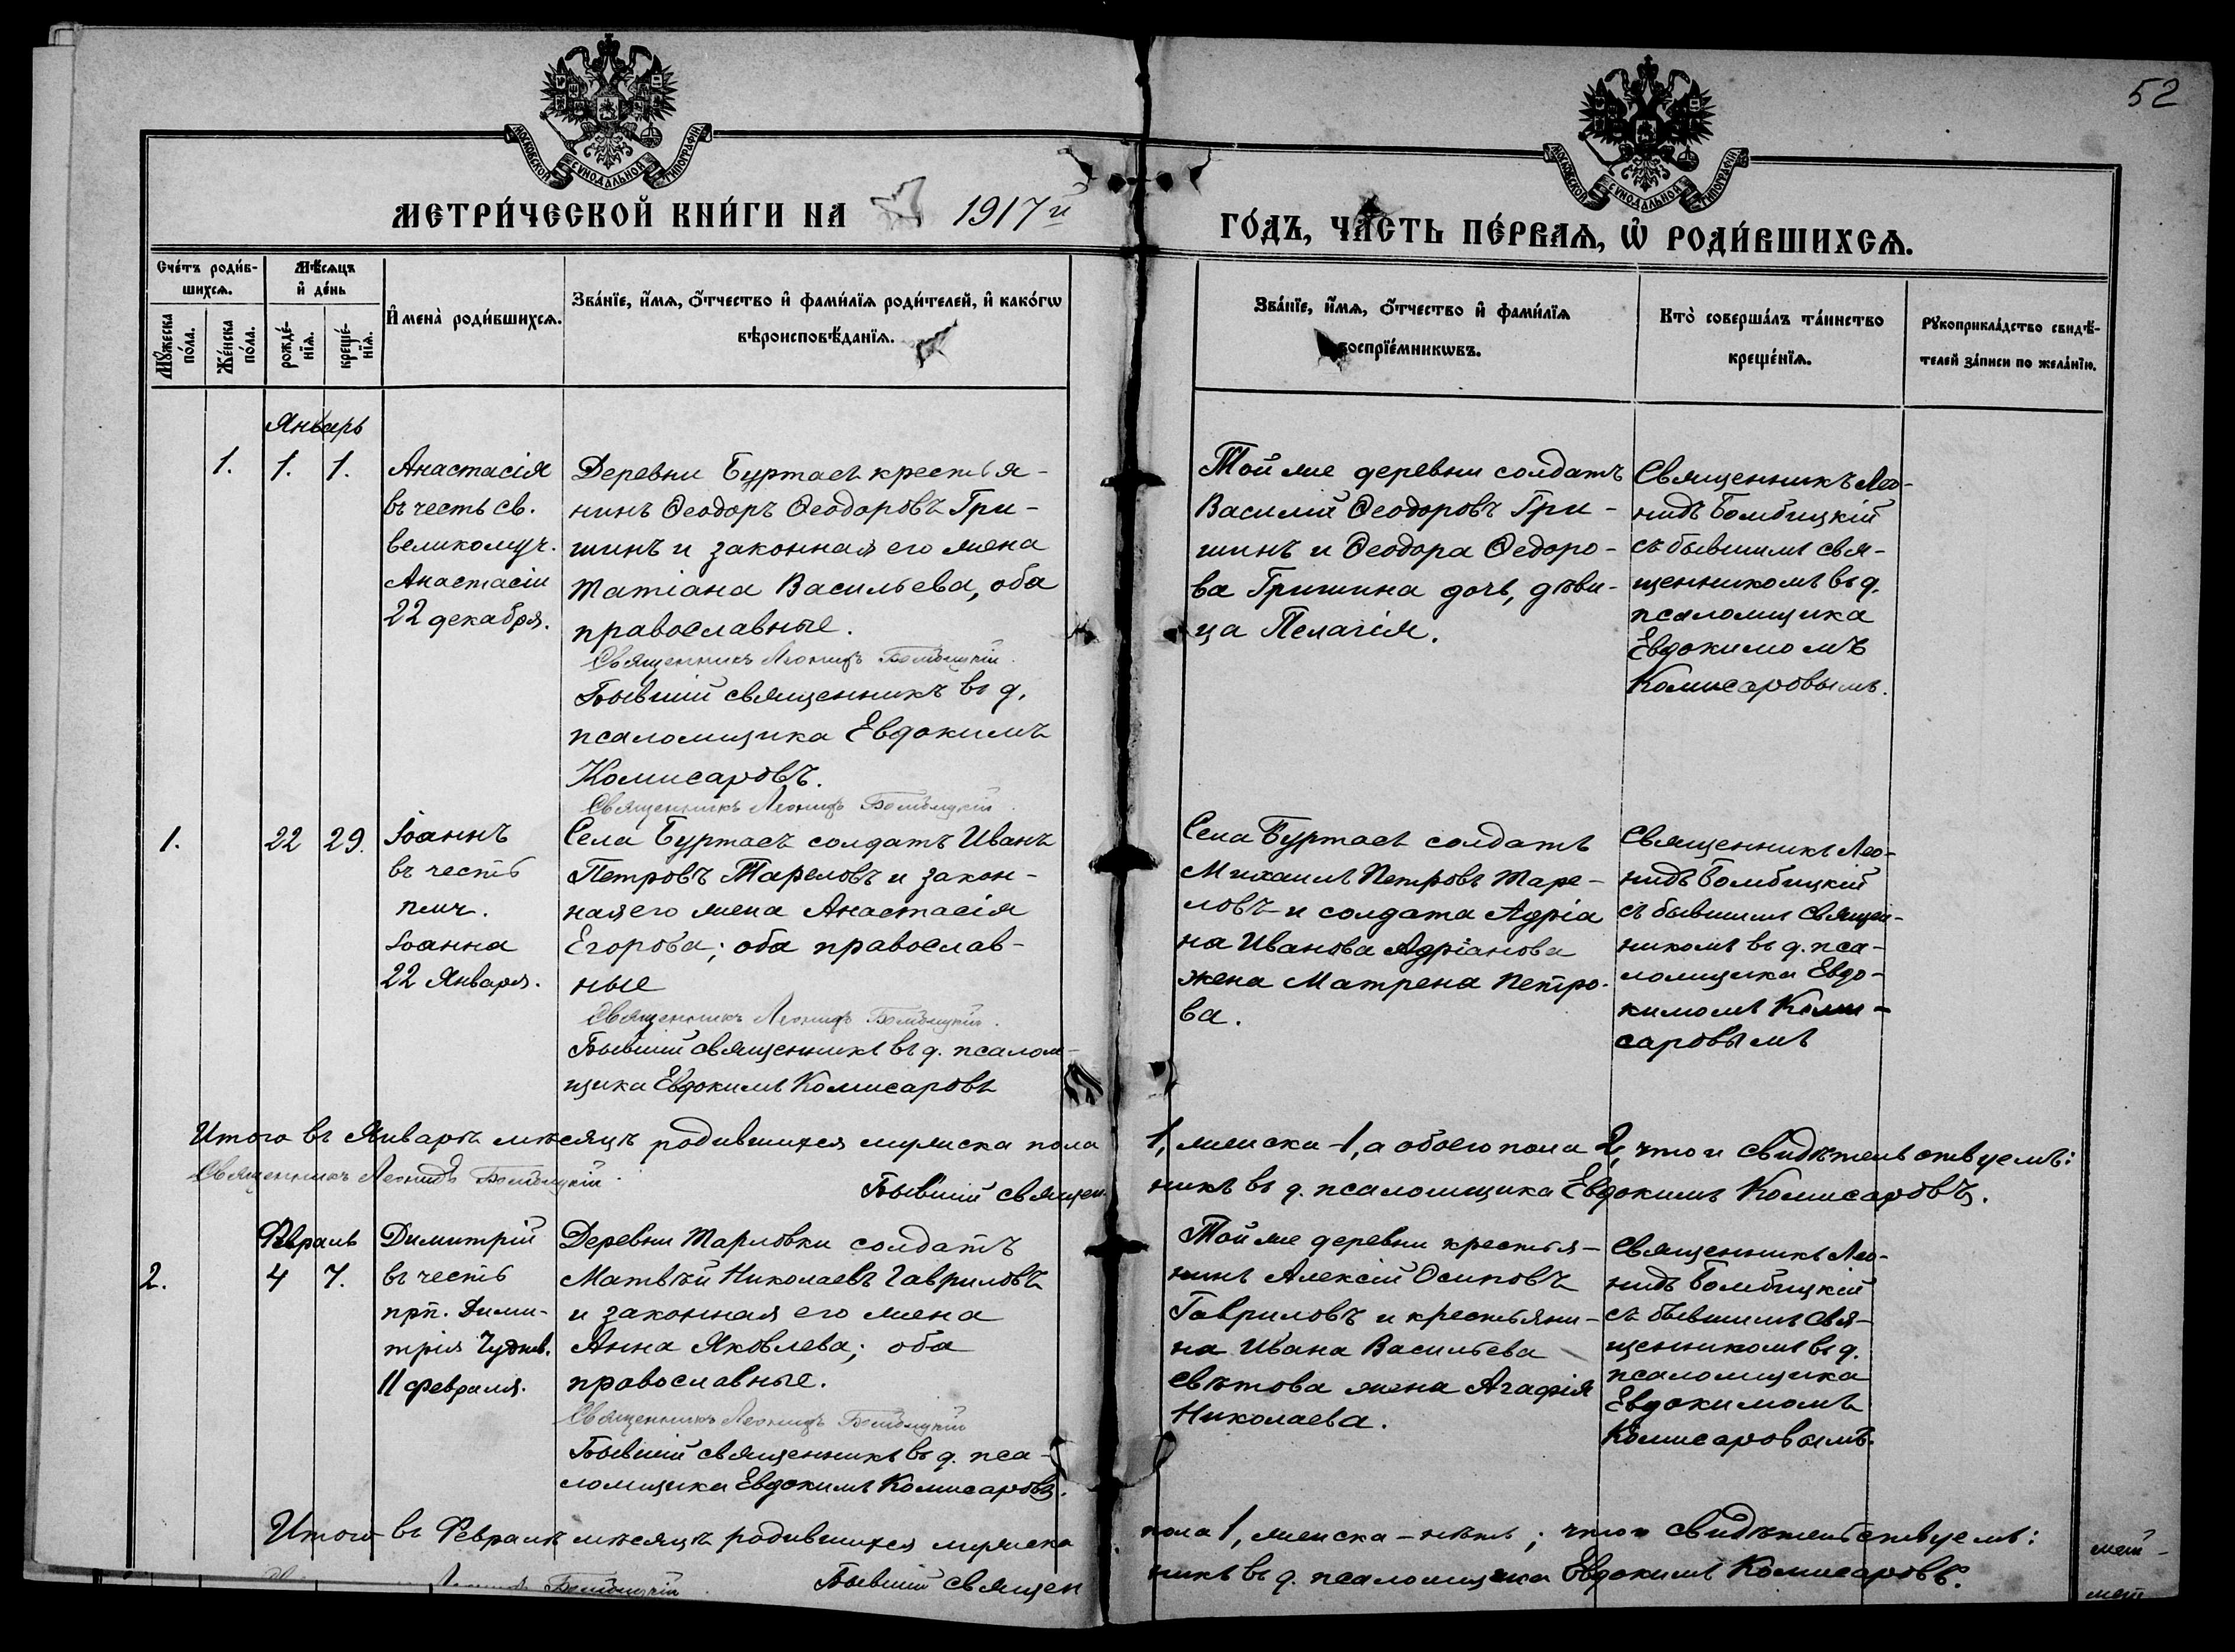 52
МОСКОВСКОЙ СѴНОДАЛЬНОЙ ТИПОГРАФІИ
МОСКОВСКОЙ СѴНОДАЛЬНОЙ ТИПОГРАФІИ
МЕТРИ́ЧЕСКОЙ КНИ́ГИ НА 1917й
ГО́ДЪ, ЧА́СТЬ ПЕ́РВАѦ, Ѡ҆ РОДИ́ВШИХСѦ.
Сче́тъ роди́в-
шихсѧ.
Мѣ́сѧцъ
и҆ де́нь
Мꙋ́жеска по́ла.
Же́нска по́ла.
рожде́-
нїѧ.
креще́-
нїѧ.
И҆мена̀ роди́вшихсѧ.
Зва́нїе, и҆́мѧ, ѻ҆́тчество и҆ фами́лїѧ роди́телей, и҆ како́гѡ
вѣроисповѣ́данїѧ.
Зва́нїе, и҆́мѧ, ѻ҆́тчество и҆ фами́лїѧ
воспрїе́мникѡвъ.
Кто̀ соверша́лъ та́инство
креще́нїѧ.
Рꙋкоприкла́дство свидѣ́-
телей за́писи по жела́нїю.
Январь
1. 1. 1.
Анастасія
въ честь св.
великомуч.
Анастасіи
22 декабря.
Деревни Буртасъ крестья-
нинъ Ѳеодоръ Ѳеодоровъ Гри-
шинъ и законная его жена
Татіана Васильева, оба
православные.
Священникъ Леонидъ Бомбицкій.
Бывшій священникъ въ д.
псаломщика Евдокимъ
Комисаровъ.
Священникъ Леонидъ Бомбицкій.
Той же деревни солдатъ
Василій Ѳеодоровъ Гри-
шинъ и Ѳеодора Ѳедоро-
ва Гришина дочь, дѣви-
ца Пелагія.
Священникъ Лео-
нидъ Бомбицкій
съ бывшимъ свя-
щенникомъ въ д.
псаломщика
Евдокимомъ
Комисаровымъ.
1. 22 29.
Іоаннъ
въ честь
пмч.
Іоанна
22 Января.
Села Буртасъ солдатъ Иванъ
Петровъ Тареловъ и закон-
ная его жена Анастасія
Егорова; оба православ-
ные
Священникъ Леонидъ Бомбицкій.
Бывшій священникъ въ д. псалом-
щика Евдокимъ Комисаровъ
Села Буртасъ солдатъ
Михаилъ Петровъ Таре-
ловъ и солдата Адріа
на Иванова Адріанова
жена Матрена Петро-
ва.
Священникъ Лео-
нидъ Бомбицкій
съ бывшимъ священ-
никомъ въ д. пса-
ломщика Евдо-
кимомъ Коми-
саровымъ
Итого въ Январѣ мѣсяцѣ родившихся мужска пола 1, женска -1, а обоего пола 2, что и свидѣтельствуемъ:
Священникъ Леонидъ Бомбицкій.
Бывшій священникъ въ д. псаломщика Евдокимъ Комисаровъ.
Февраль
2. 4 7.
Димитрій
въ честь
прп. Дими-
трія Чудотв.
11 февраля.
Деревни Тарловки солдатъ
Матвѣй Николаевъ Гавриловъ
и законная его жена
Анна Яковлева; оба
православные.
Священникъ Леонидъ Бомбицкій
Бывшій священникъ въ д. пса-
ломщика Евдокимъ Комисаровъ.
Той же деревни крестья-
нинъ Алексій Осиповъ
Гавриловъ и крестьяни-
на Ивана Васильева
Свѣтова жена Агафія
Николаева.
Священникъ Лео-
нидъ Бомбицкій
съ бывшимъ свя-
щенникомъ въ д.
псаломщика
Евдокимомъ
Комисаровымъ.
Итого въ Февралѣ мѣсяцѣ родившихся мужска пола 1, женска - нѣтъ; что и свидѣтельствуемъ:
Леонидъ Бомбицкій.
Бывшій священникъ въ д. псаломщика Евдокимъ Комисаровъ.